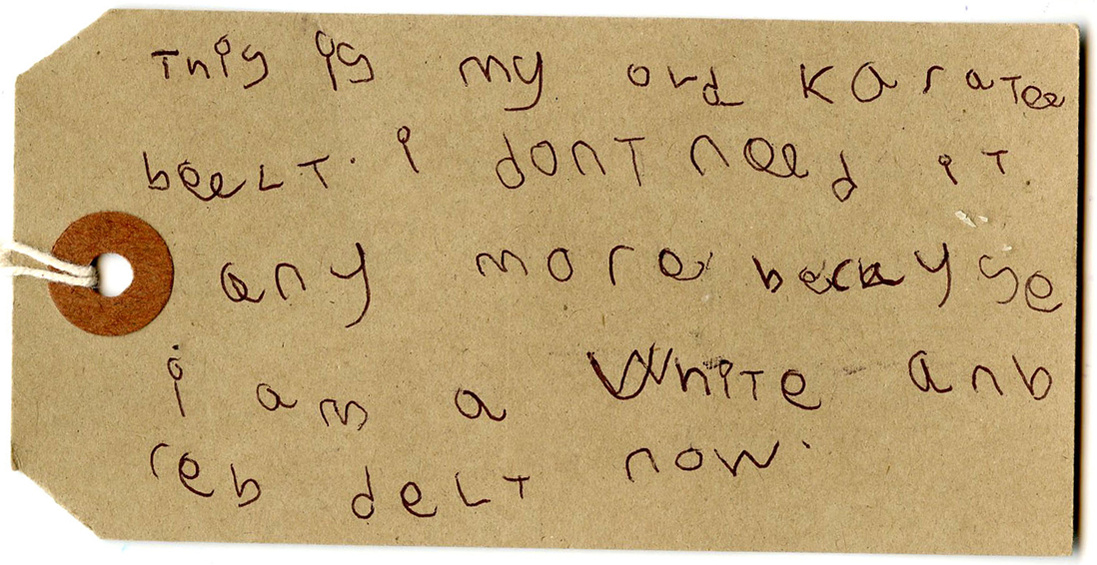 This is my old karatee
beelt. i dont need it
any more becayse
i am a white anb
reb delt now.